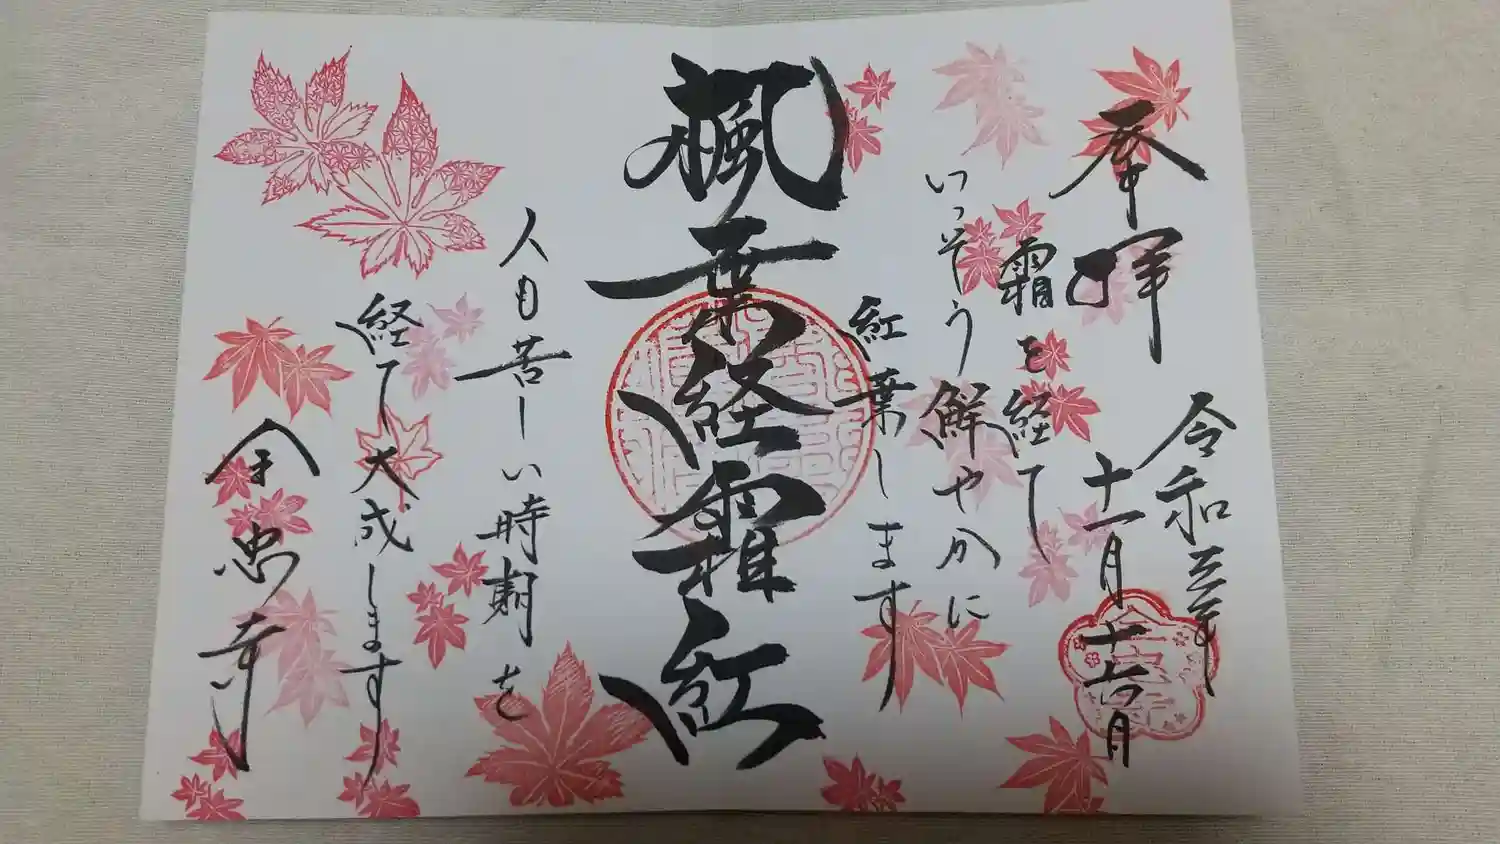 奉拝
令和三年
十一月十六日
霜を経て
いっそう鮮やかに
紅葉します
楓葉経霜紅
人も苦しい時期を
経て大成します
全忠寺